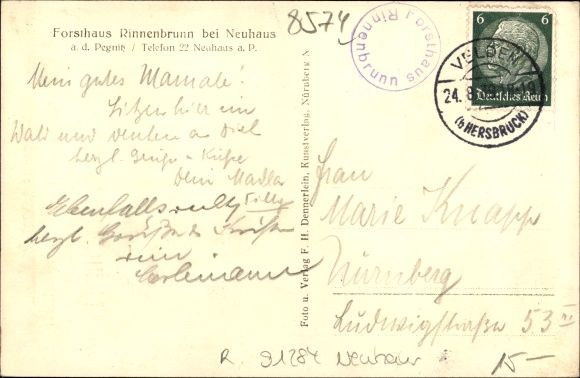 Forsthaus Rinnenbrunn bei Neuhaus
a. d. Pegnitz / Telefon 22 Neuhaus a. P.
8574
Forsthaus Rinnenbrunn
6 6
Deutsches Reich
VELDEN
24. 8.
(b HERSBRUCK)
Mein gutes Mamale!
Sitzen hier im
Wald und denken an Dich
herzl. Grüße u. Küsse
Dein
Ebenfalls
herzl. Grüße
Foto u. Verlag F. H. Dennerlein, Kunstverlag, Nürnberg N
Frau
Marie Knapp
Nürnberg
Ludwigstraße 53 III
R. 91284 Neuhaus
15-